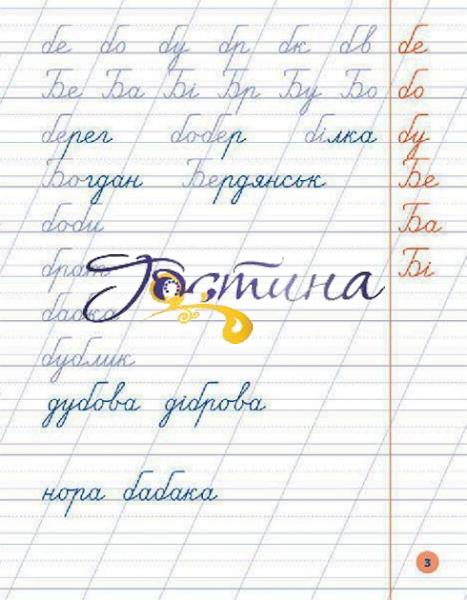 бе бо бу бр бк бв бе
Бе Ба Бі Бр Бу Бо бо
берег бобер білка бу
Богдан Бердянськ Бе
боби Ба
брат Бі
Гостина
бабка
бублик
дубова діброва
нора бабака
3